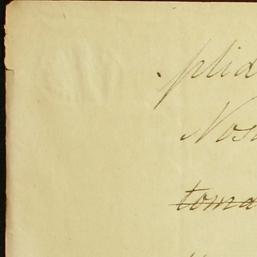 plid
Nos
toma